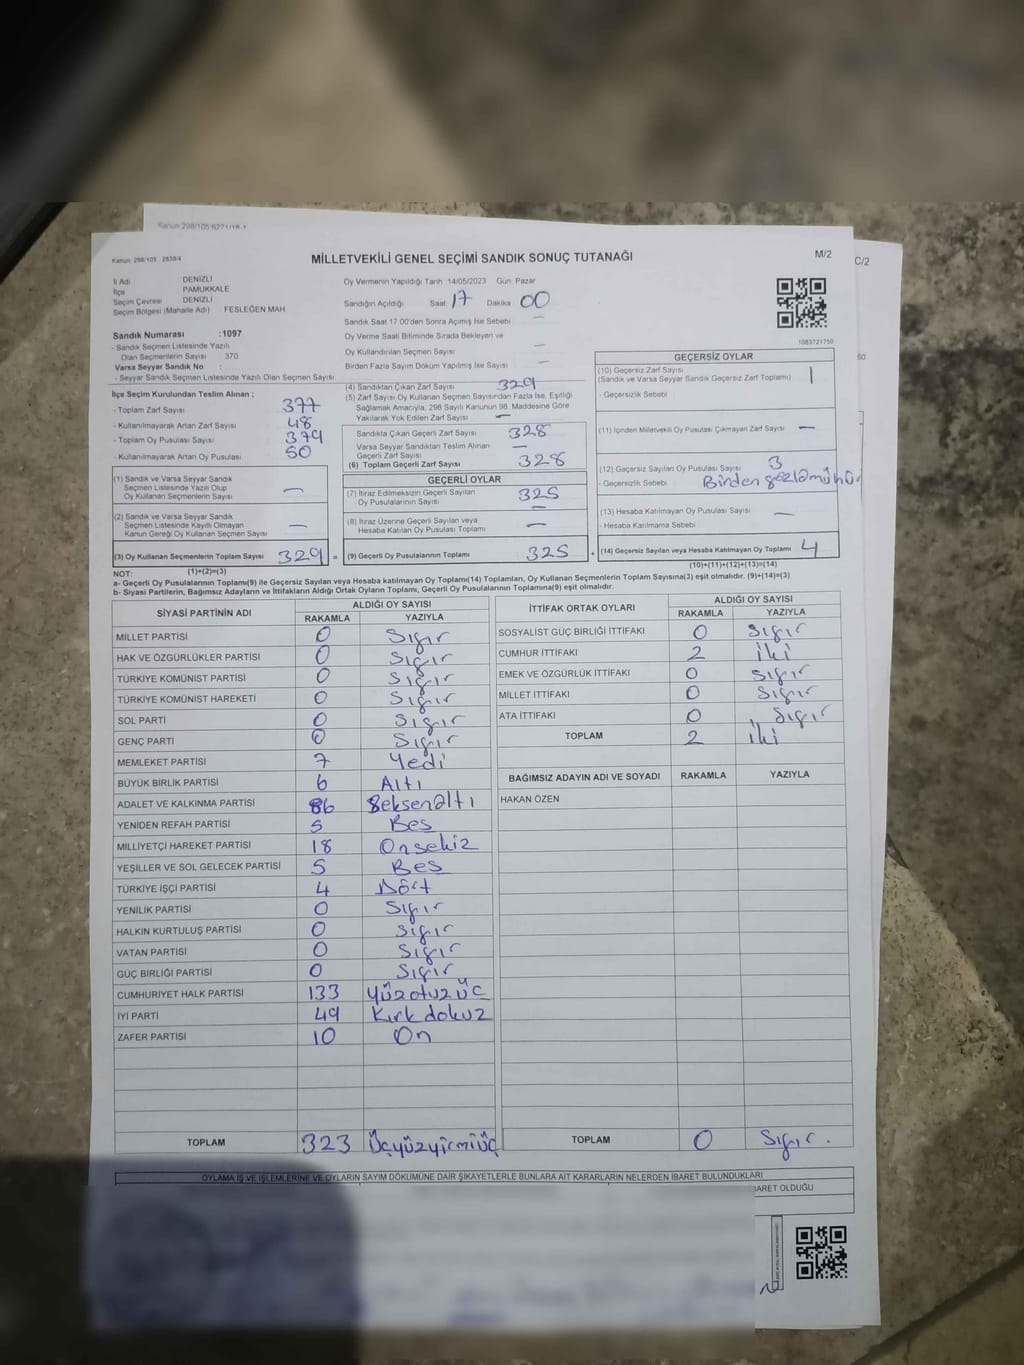 Kanun 298/105 6271/18-1
Kanun: 298/105 2839/4
MİLLETVEKİLİ GENEL SEÇİMİ SANDIK SONUÇ TUTANAĞI
M/2
C/2
İl Adı DENİZLİ
İlçe PAMUKKALE
Seçim Çevresi DENİZLİ
Seçim Bölgesi (Mahalle Adı) FESLEĞEN MAH
Sandık Numarası : 1097
- Sandık Seçmen Listesinde Yazılı
Olan Seçmenlerin Sayısı 370
Varsa Seyyar Sandık No :
- Seyyar Sandık Seçmen Listesinde Yazılı Olan Seçmen Sayısı
İlçe Seçim Kurulundan Teslim Alınan ;
- Toplam Zarf Sayısı 377
- Kullanılmayarak Artan Zarf Sayısı 48
- Toplam Oy Pusulası Sayısı 379
- Kullanılmayarak Artan Oy Pusulası 50
(1) Sandık ve Varsa Seyyar Sandık
Seçmen Listesinde Yazılı Olup
Oy Kullanan Seçmenlerin Sayısı —
(2) Sandık ve Varsa Seyyar Sandık
Seçmen Listesinde Kayıtlı Olmayan
Kanun Gereği Oy Kullanan Seçmen Sayısı —
(3) Oy Kullanan Seçmenlerin Toplam Sayısı 329 =
(1)+(2)=(3)
Oy Vermenin Yapıldığı Tarih 14/05/2023 Gün Pazar
Sandığın Açıldığı Saat 17 Dakika 00
Sandık Saat 17.00'den Sonra Açılmış İse Sebebi —
Oy Verme Saati Bitiminde Sırada Bekleyen ve
Oy Kullandırılan Seçmen Sayısı —
Birden Fazla Sayım Döküm Yapılmış İse Sayısı —
(4) Sandıktan Çıkan Zarf Sayısı 329
(5) Zarf Sayısı Oy Kullanan Seçmen Sayısından Fazla İse, Eşitliği
Sağlamak Amacıyla, 298 Sayılı Kanunun 98. Maddesine Göre
Yakılarak Yok Edilen Zarf Sayısı —
Sandıkta Çıkan Geçerli Zarf Sayısı 328
Varsa Seyyar Sandıktan Teslim Alınan
Geçerli Zarf Sayısı —
(6) Toplam Geçerli Zarf Sayısı 328
GEÇERLİ OYLAR
(7) İtiraz Edilmeksizin Geçerli Sayılan
Oy Pusulalarının Sayısı 325
(8) İtiraz Üzerine Geçerli Sayılan veya
Hesaba Katılan Oy Pusulası Toplamı —
(9) Geçerli Oy Pusulalarının Toplamı 325 +
1083721750
GEÇERSİZ OYLAR
(10) Geçersiz Zarf Sayısı
(Sandık ve Varsa Seyyar Sandık Geçersiz Zarf Toplamı) 1
- Geçersizlik Sebebi
(11) İçinden Milletvekili Oy Pusulası Çıkmayan Zarf Sayısı —
(12) Geçersiz Sayılan Oy Pusulası Sayısı 3
- Geçersizlik Sebebi Birden
(13) Hesaba Katılmayan Oy Pusulası Sayısı —
- Hesaba Katılmama Sebebi
(14) Geçersiz Sayılan veya Hesaba Katılmayan Oy Toplamı 4
(10)+(11)+(12)+(13)=(14)
50
NOT:
a- Geçerli Oy Pusulalarının Toplamı(9) ile Geçersiz Sayılan veya Hesaba katılmayan Oy Toplamı(14) Toplamları, Oy Kullanan Seçmenlerin Toplam Sayısına(3) eşit olmalıdır. (9)+(14)=(3)
b- Siyasi Partilerin, Bağımsız Adayların ve İttifakların Aldığı Ortak Oyların Toplamı, Geçerli Oy Pusulalarının Toplamına(9) eşit olmalıdır.
SİYASİ PARTİNİN ADI ALDIĞI OY SAYISI
RAKAMLA YAZIYLA
MİLLET PARTİSİ 0 Sıfır
HAK VE ÖZGÜRLÜKLER PARTİSİ 0 Sıfır
TÜRKİYE KOMÜNİST PARTİSİ 0 Sıfır
TÜRKİYE KOMÜNİST HAREKETİ 0 Sıfır
SOL PARTİ 0 Sıfır
GENÇ PARTİ 0 Sıfır
MEMLEKET PARTİSİ 7 Yedi
BÜYÜK BİRLİK PARTİSİ 6 Altı
ADALET VE KALKINMA PARTİSİ 86 Seksenaltı
YENİDEN REFAH PARTİSİ 5 Beş
MİLLİYETÇİ HAREKET PARTİSİ 18 Onsekiz
YEŞİLLER VE SOL GELECEK PARTİSİ 5 Beş
TÜRKİYE İŞÇİ PARTİSİ 4 Dört
YENİLİK PARTİSİ 0 Sıfır
HALKIN KURTULUŞ PARTİSİ 0 Sıfır
VATAN PARTİSİ 0 Sıfır
GÜÇ BİRLİĞİ PARTİSİ 0 Sıfır
CUMHURİYET HALK PARTİSİ 133 Yüzotuzüç
İYİ PARTİ 49 Kırkdokuz
ZAFER PARTİSİ 10 On
TOPLAM 323 Üçyüzyirmiüç
İTTİFAK ORTAK OYLARI ALDIĞI OY SAYISI
RAKAMLA YAZIYLA
SOSYALİST GÜÇ BİRLİĞİ İTTİFAKI 0 Sıfır
CUMHUR İTTİFAKI 2 iki
EMEK VE ÖZGÜRLÜK İTTİFAKI 0 Sıfır
MİLLET İTTİFAKI 0 Sıfır
ATA İTTİFAKI 0 Sıfır
TOPLAM 2 iki
BAĞIMSIZ ADAYIN ADI VE SOYADI RAKAMLA YAZIYLA
HAKAN ÖZEN
TOPLAM 0 Sıfır.
OYLAMA İŞ VE İŞLEMLERİNE VE OYLARIN SAYIM DÖKÜMÜNE DAİR ŞİKAYETLERLE BUNLARA AİT KARARLARIN NELERDEN İBARET BULUNDUKLARI
BARET OLDUĞU